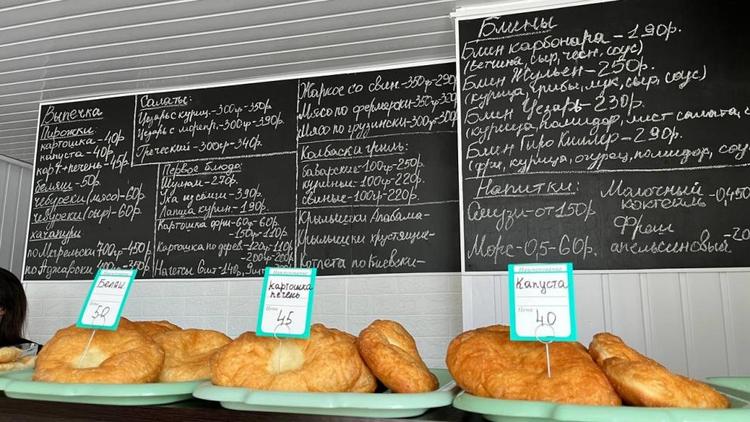 Выпечка
Пирожки:
картошка-40р.
капуста-40р.
кар+печень-45р.
беляш-50р.
чебуреки (мясо)-60р.
чебуреки (сыр)-60р.
хачапури
по Мегрельски 700гр-450р.
по Аджарски 400гр-350р.
Салаты:
Цезарь с куриц.-300гр-350р.
Цезарь с 300гр-390р.
Греческий-300гр-340р.
Первое блюдо:
Шулюм-270р.
Уха из сёмги-390р.
Лапша курин-190р.
Картошка фри-60г-60р.
150гр-110р.
Картошка по дерев-120гр-110р.
-200гр-200р.
Нагетсы 6шт-140р, 9шт
Жаркое со свин-350гр-290р.
Мясо по фермерски-350гр-300
Мясо по грузински-300гр-300
Колбаски гриль:
баварские-100гр-250р.
куриные-100гр-220р.
свиные-100гр-220р.
Крылышки Алабама-
Крылышки хрустящие-
Котлета по Киевски-
Блины
Блин карбонара-190р.
(ветчина, сыр, чесн, соус)
Блин Жульен-250р.
(курица, грибы, лук, сыр, соус)
Блин Цезарь-230р.
(курица, помидор, лист салата, с
Блин Гиро Киллер-290р.
(фри, курица, огурец, помидор, соус
Напитки:
Смузи-от 150р
Морс-0,5-60р.
Молочный
коктейль -0,4
Фреш
апельсиновый -20
Беляш
50
картошка
печень
Цена
45
Капуста
Цена
40